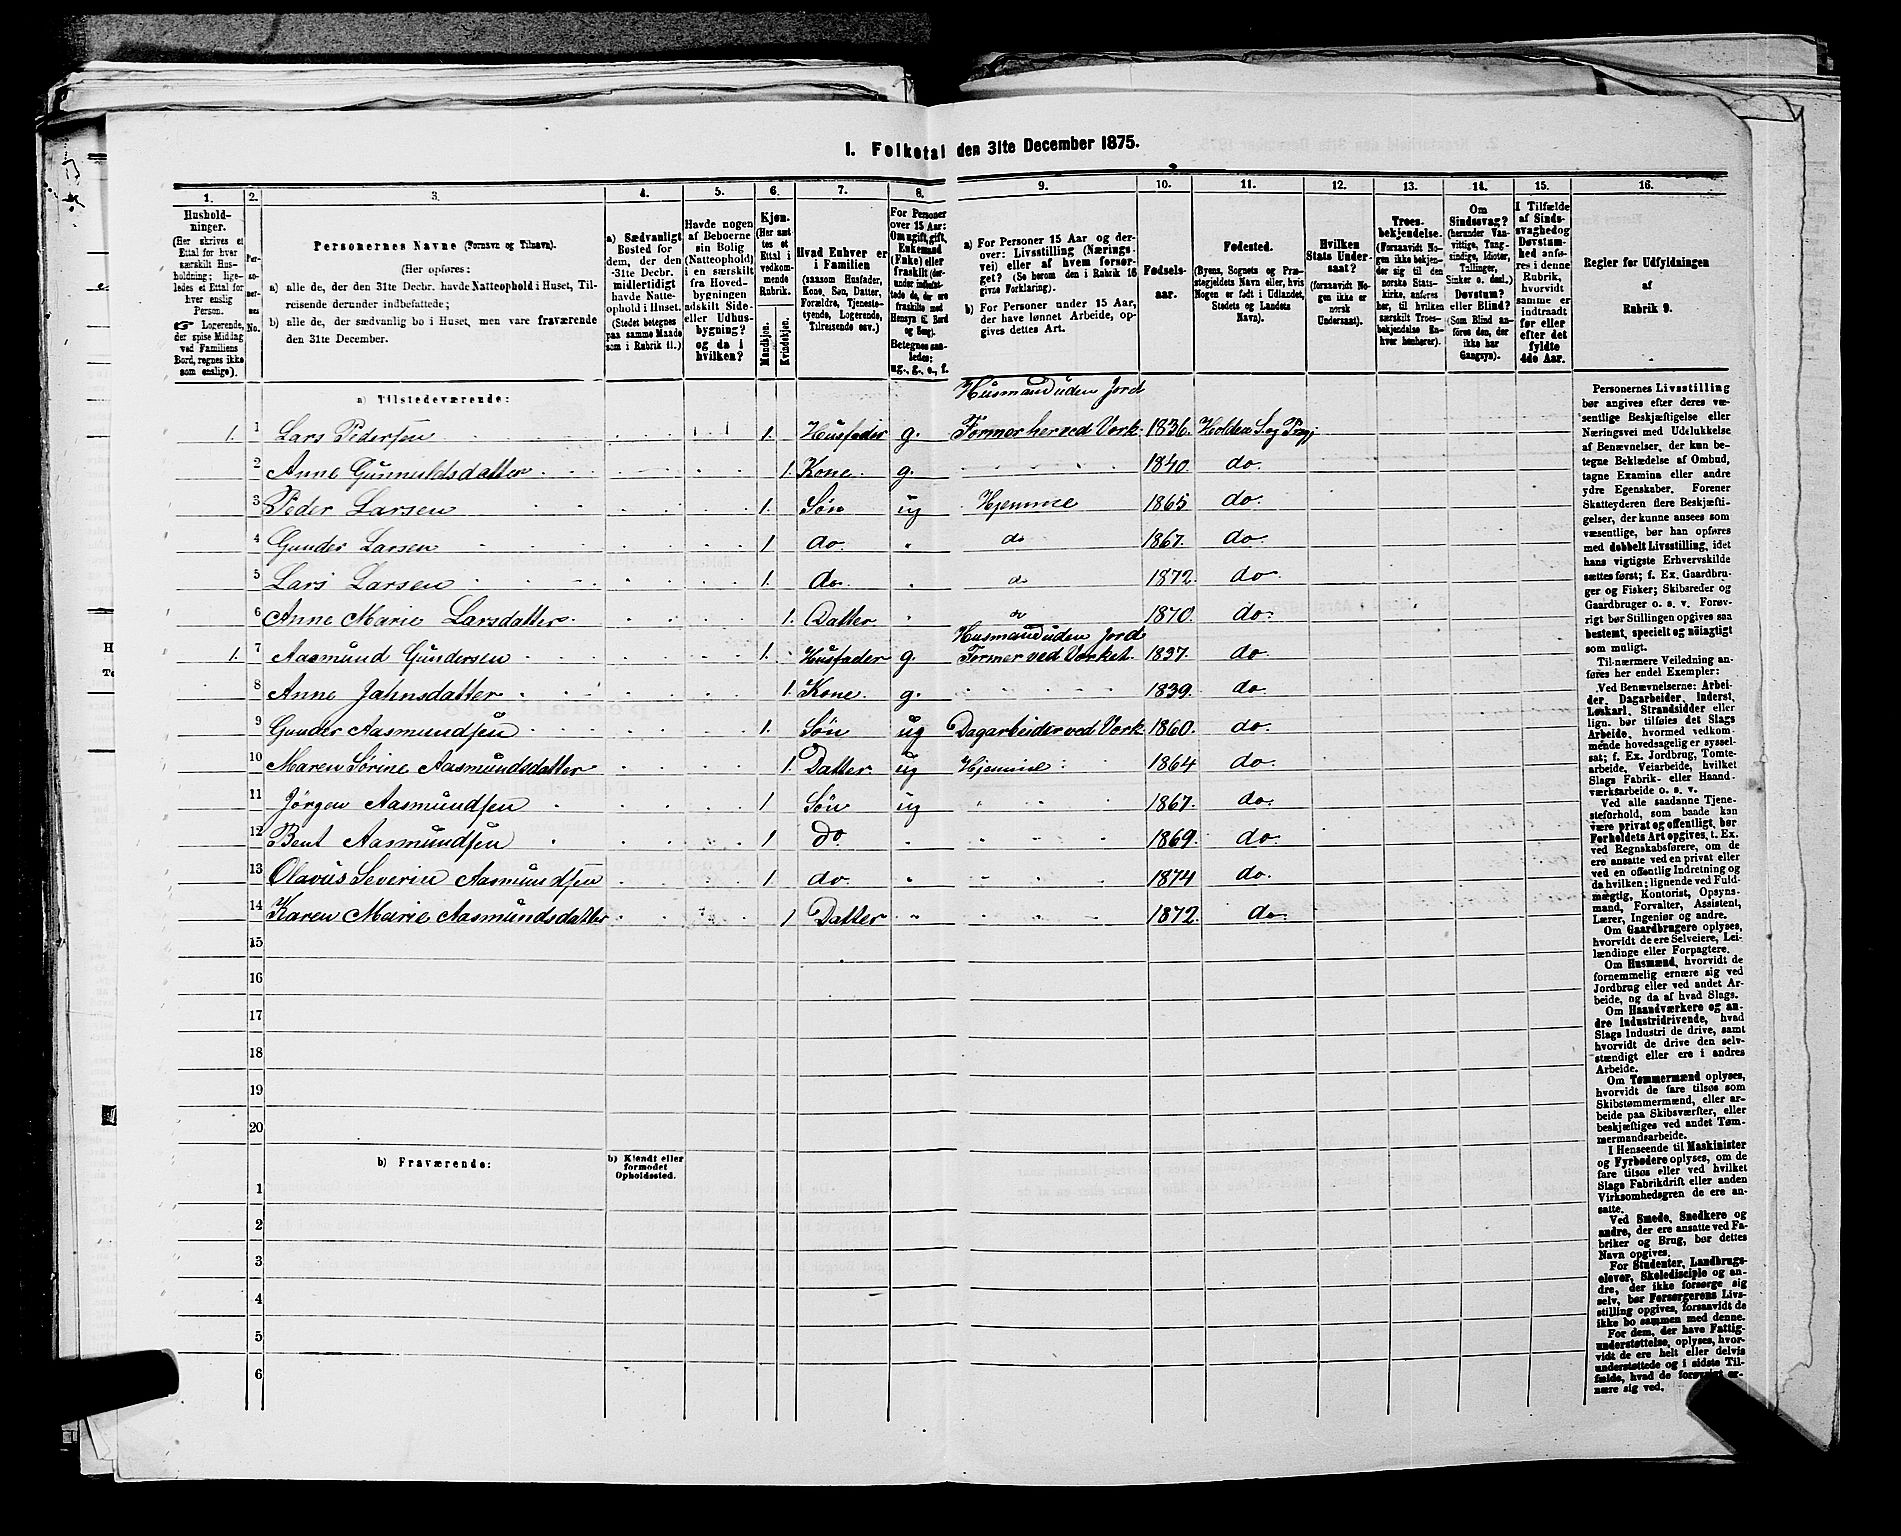 1. Folketal den 31te December 1875.
1. 2. 3. 4. 5. 6. 7. 8. 9. 10. 11. 12. 13. 14. 15. 16.
Hushold-
ninger.
(Her skrives et
Ettal for hver
særskilt Hus-
holdning; lige-
ledes et Ettal for
hver enslig
Person.
☞ Logerende,
der spise Middag
ved Familiens
Bord, regnes ikke
som enslige).
Per-
so-
ner-
nes
No.
Personernes Navne (Fornavn og Tilnavn).
(Her opføres:
a) alle de, der den 31te Decbr. havde Natteophold i Huset, Til-
reisende derunder indbefattede;
b) alle de, der sædvanlig bo i Huset, men vare fraværende
den 31te December.
a) Sædvanligt
Bosted for
dem, der den
31te Decbr.
midlertidigt
havde Natte-
ophold i Huset.
(Stedet betegnes
paa samme Maade
som i Rubrik 11.)
Havde nogen
af Beboerne
sin Bolig
(Natteophold)
i en særskilt
fra Hoved-
bygningen
adskilt Side-
eller Udhus-
bygning?
og da i
hvilken?
Kjøn.
(Her sæt-
tes et
Ettal i
vedkom-
mende
Rubrik.
Mandkjøn.
Kvindekjøn.
Hvad Enhver er
i Familien
(saasom Husfader,
Kone, Søn, Datter,
Forældre, Tjeneste-
tyende, Logerende,
Tilreisende osv.)
For Personer
over 15 Aar:
Om ugift, gift,
Enkemand
(Enke) eller
fraskilt (der-
under indbefat-
tede de, der ere
fraskilte med
Hensyn til Bord
og Seng).
Betegnes saa-
ledes:
ug., g., e., f.
a) For Personer 15 Aar og der-
over: Livsstilling (Nærings-
vei) eller af hvem forsør-
get? (Se herom den i Rubrik 16
givne Forklaring).
b) For Personer under 15 Aar,
der have lønnet Arbeide, op-
gives dettes Art.
Fødsels-
aar.
Fødested.
(Byens, Sognets og Præ-
stegjeldets Navn eller, hvis
Nogen er født i Udlandet,
Stedets og Landets
Navn).
Hvilken
Stats Under-
saat?
(forsaavidt No-
gen ikke er
norsk
Undersaat).
Troes-
bekjendelse.
(Forsaavidt No-
gen ikke bekjen-
der sig til den
norske Stats-
kirke, anføres
her, til hvilken
særskilt Troes-
bekjendelse En-
hver henhører).
Om
Sindssvag?
(herunder Van-
vittige, Tung-
sindige, Idioter,
Tullinger,
Sinker o. desl.)
Døvstum?
eller Blind?
(Som Blind an-
føres den, der
ikke har
Gangsyn).
I Tilfælde
af Sinds-
svaghed og
Døvstum-
hed anfø-
res i denne
Rubrik,
hvorvidt
samme er
indtraadt
før eller
efter det
fyldte
4de Aar.
Regler for Udfyldningen
af
Rubrik 9.
a) Tilstedeværende:
Husmand uden Jord
1. 1 Lars Pedersen 1. Husfader g. Former her ved Værk. 1836. Holden S. og Prgj
2 Anne Gunnuldsdatter 1. Kone g. 1840 do.
3 Peder Larsen 1. Søn ug Hjemme 1865 do.
4 Gunder Larsen 1 do. " do 1867. do.
5 Lars Larsen 1. do. " do 1872. do.
6 Anne Marie Larsdatter. 1. Datter " do 1870. do.
Husmand uden Jord
1. 7 Aasmund Gundersen 1. Husfader g. Former ved Værket. 1837. do.
8 Anne Jahnsdatter 1. Kone. g. 1839. do.
9 Gunder Aasmundsen 1. Søn ug Dagarbeider ved Værk 1860. do.
10 Maren Sørine Aasmundsdatter 1. Datter. ug Hjemme 1864 do.
11 Jørgen Aasmundsen 1 Søn ug " 1867. do.
12 Bent Aasmundsen 1 Do. " " 1869. do.
13 Olavus Severin Aasmundsen 1. do. " " 1874 do.
14 Karen Marie Aasmundsdatter 1 Datter " " 1872. do.
15
16
17
18
19
20
b) Fraværende:
b) Kjendt eller
formodet
Opholdssted.
1
2
3
4
5
6
Personernes Livsstilling
bør angives efter deres væ-
sentlige Beskjæftigelse eller
Næringsvei med Udelukkelse
af Benævnelser, der kun be-
tegne Beklædelse af Ombud,
tagne Examina eller andre
ydre Egenskaber. Forener
Skatteyderen flere Beskjæfti-
gelser, der kunne ansees som
væsentlige, bør han opføres
med dobbelt Livsstilling, idet
hans vigtigste Erhvervskilde
sættes først; f. Ex. Gaardbru-
ger og Fisker; Skibsreder og
Gaardbruger o. s. v. Forøv-
rigt bør Stillingen opgives saa
bestemt, specielt og nøiagtigt
som muligt.
Til nærmere Veiledning an-
føres her endel Exempler:
Ved Benævnelserne: Arbei-
der, Dagarbeider, Inderst,
Løskarl, Strandsidder eller
lign. bør tilføies det Slags
Arbeide, hvormed vedkom-
mende hovedsagelig er syssel-
sat; f. Ex. Jordbrug, Tomte-
arbeide, Veiarbeide, hvilket
Slags Fabrik- eller Haand-
værksarbeide o. s. v.
Ved alle saadanne Tjene-
steforhold, som baade kan
være privat og offentligt, bør
Forholdets Art opgives, t. Ex.
ved Regnskabsførere, om de
ere ansatte ved en privat eller
ved en offentlig Indretning og
da hvilken; lignende ved Fuld-
mægtig, Kontorist, Opsyns-
mand, Forvalter, Assistent,
Lærer, Ingeniør og andre.
Om Gaardbrugere oplyses,
hvorvidt de ere Selveiere, Lei-
lændinge eller Forpagtere.
Om Husmænd, hvorvidt de
fornemmelig ernære sig ved
Jordbrug eller ved andet Ar-
beide, og da af hvad Slags.
Om Haandværkere og an-
dre Industridrivende, hvad
Slags Industri de drive, samt
hvorvidt de drive den selv-
stændigt eller ere i andres
Arbeide.
Om Tømmermænd oplyses,
hvorvidt de fare tilsøs som
Skibstømmermænd, eller ar-
beide paa Skibsværfter, eller
beskjæftiges ved andet Tøm-
mermandsarbeide.
I Henseende til Maskinister
og Fyrbødere oplyses, om de
fare tilsøs eller ved hvilket
Slags Fabrikdrift eller anden
Virksomhedsgren de ere an-
satte.
Ved Smede, Snedkere og
andre, der ere ansatte ved Fa-
briker og Brug, bør dettes
Navn opgives.
For Studenter, Landbrugs-
elever, Skoledisciple og an-
dre, der ikke forsørge sig
selv, bør Forsørgerens Livs-
stilling opgives, forsaavidt de
ikke bo sammen med denne.
For dem, der have Fattig-
understøttelse, oplyses, hvor-
vidt de ere helt eller delvis
understøttede og i sidste Til-
fælde, hvad de forøvrigt er-
nære sig ved.